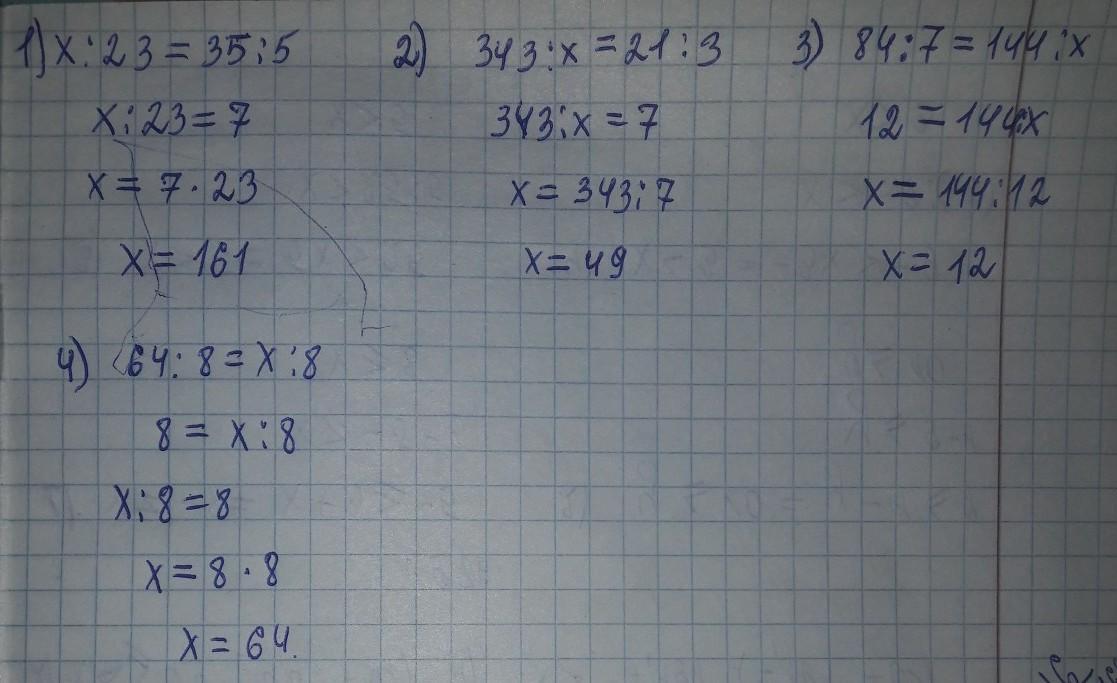 1) x:23=35:5
x:23=7
x=7·23
x=161
2) 343:x=21:3
343:x=7
x=343:7
x=49
3) 84:7=144:x
12=144:x
x=144:12
x=12
4) 64:8=x:8
8=x:8
x:8=8
x=8·8
x=64.